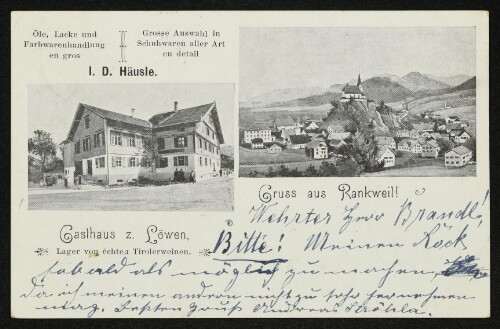 Öle, Lacke und
Farbwarenhandlung
en gros
Grosse Auswahl in
Schuhwaren aller Art
en detail
I. D. Häusle.
Gasthaus z. Löwen,
Lager von echten Tirolerweinen.
Gruss aus Rankweil!
Wehrter Herr Brandl!
Bitte! Meinen Rock
sobald als möglich zu machen,
Da ich meinen andern nicht zu sehr hernehmen
mag. Besten Gruß Andreas